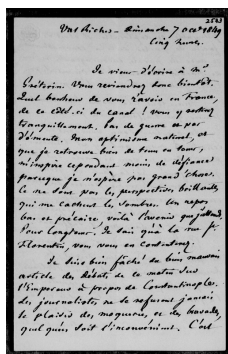 2583
Val Richer - Dimanche 7 oct 1849
Cinq heures.
Je viens d'écrire à Mr
Vous reviendrez donc bientôt.
Quel bonheur de vous ravoir en France,
de ce côté-ci du canal ! Vous y resterez
tranquillement. Pas de guerre et pas
d'émeute. Mon optimisme naturel, et
que je retrouve bien de tems en tems,
m'inspire cependant moins de défiance
parce que je n'espère pas grand chose.
Ce ne sont pas les perspectives brillantes
qui me cachent les sombres. Un repos
bas et précaire, voilà l'avenir que j'attends,
Pour longtems. Je sais qu'à la rue St
Florentin, vous vous en contenterez.
Je suis bien fâché du bien mauvais
article des Débats de ce matin sur
l'Empereur à propos de Constantinople.
Les journalistes ne se refusent jamais
le plaisir des moqueries, et des bravades,
quel qu'en soit l'inconvénient. C'est